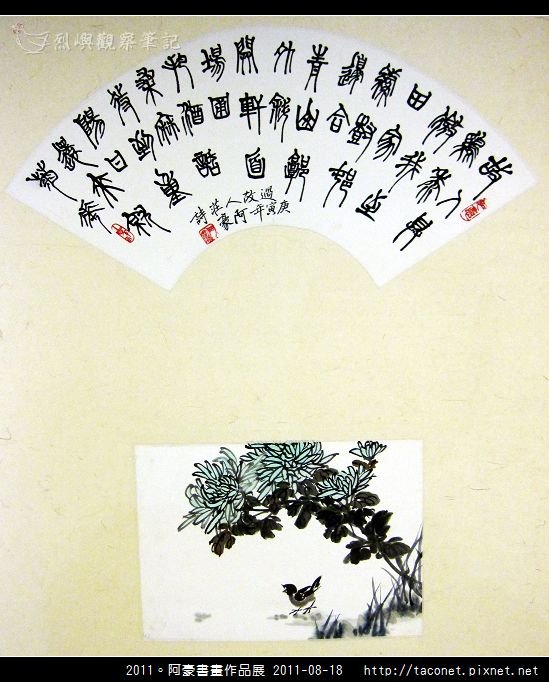 烈嶼觀察筆記
故人具
雞黍
邀我至
田家
綠樹村
邊合
青山郭
外斜
開軒面
場圃
把酒話
桑麻
待到重
陽日
還來就
菊花
過故人莊詩
庚寅年阿豪
2011。阿豪書畫作品展 2011-08-18 http://taconet.pixnet.net